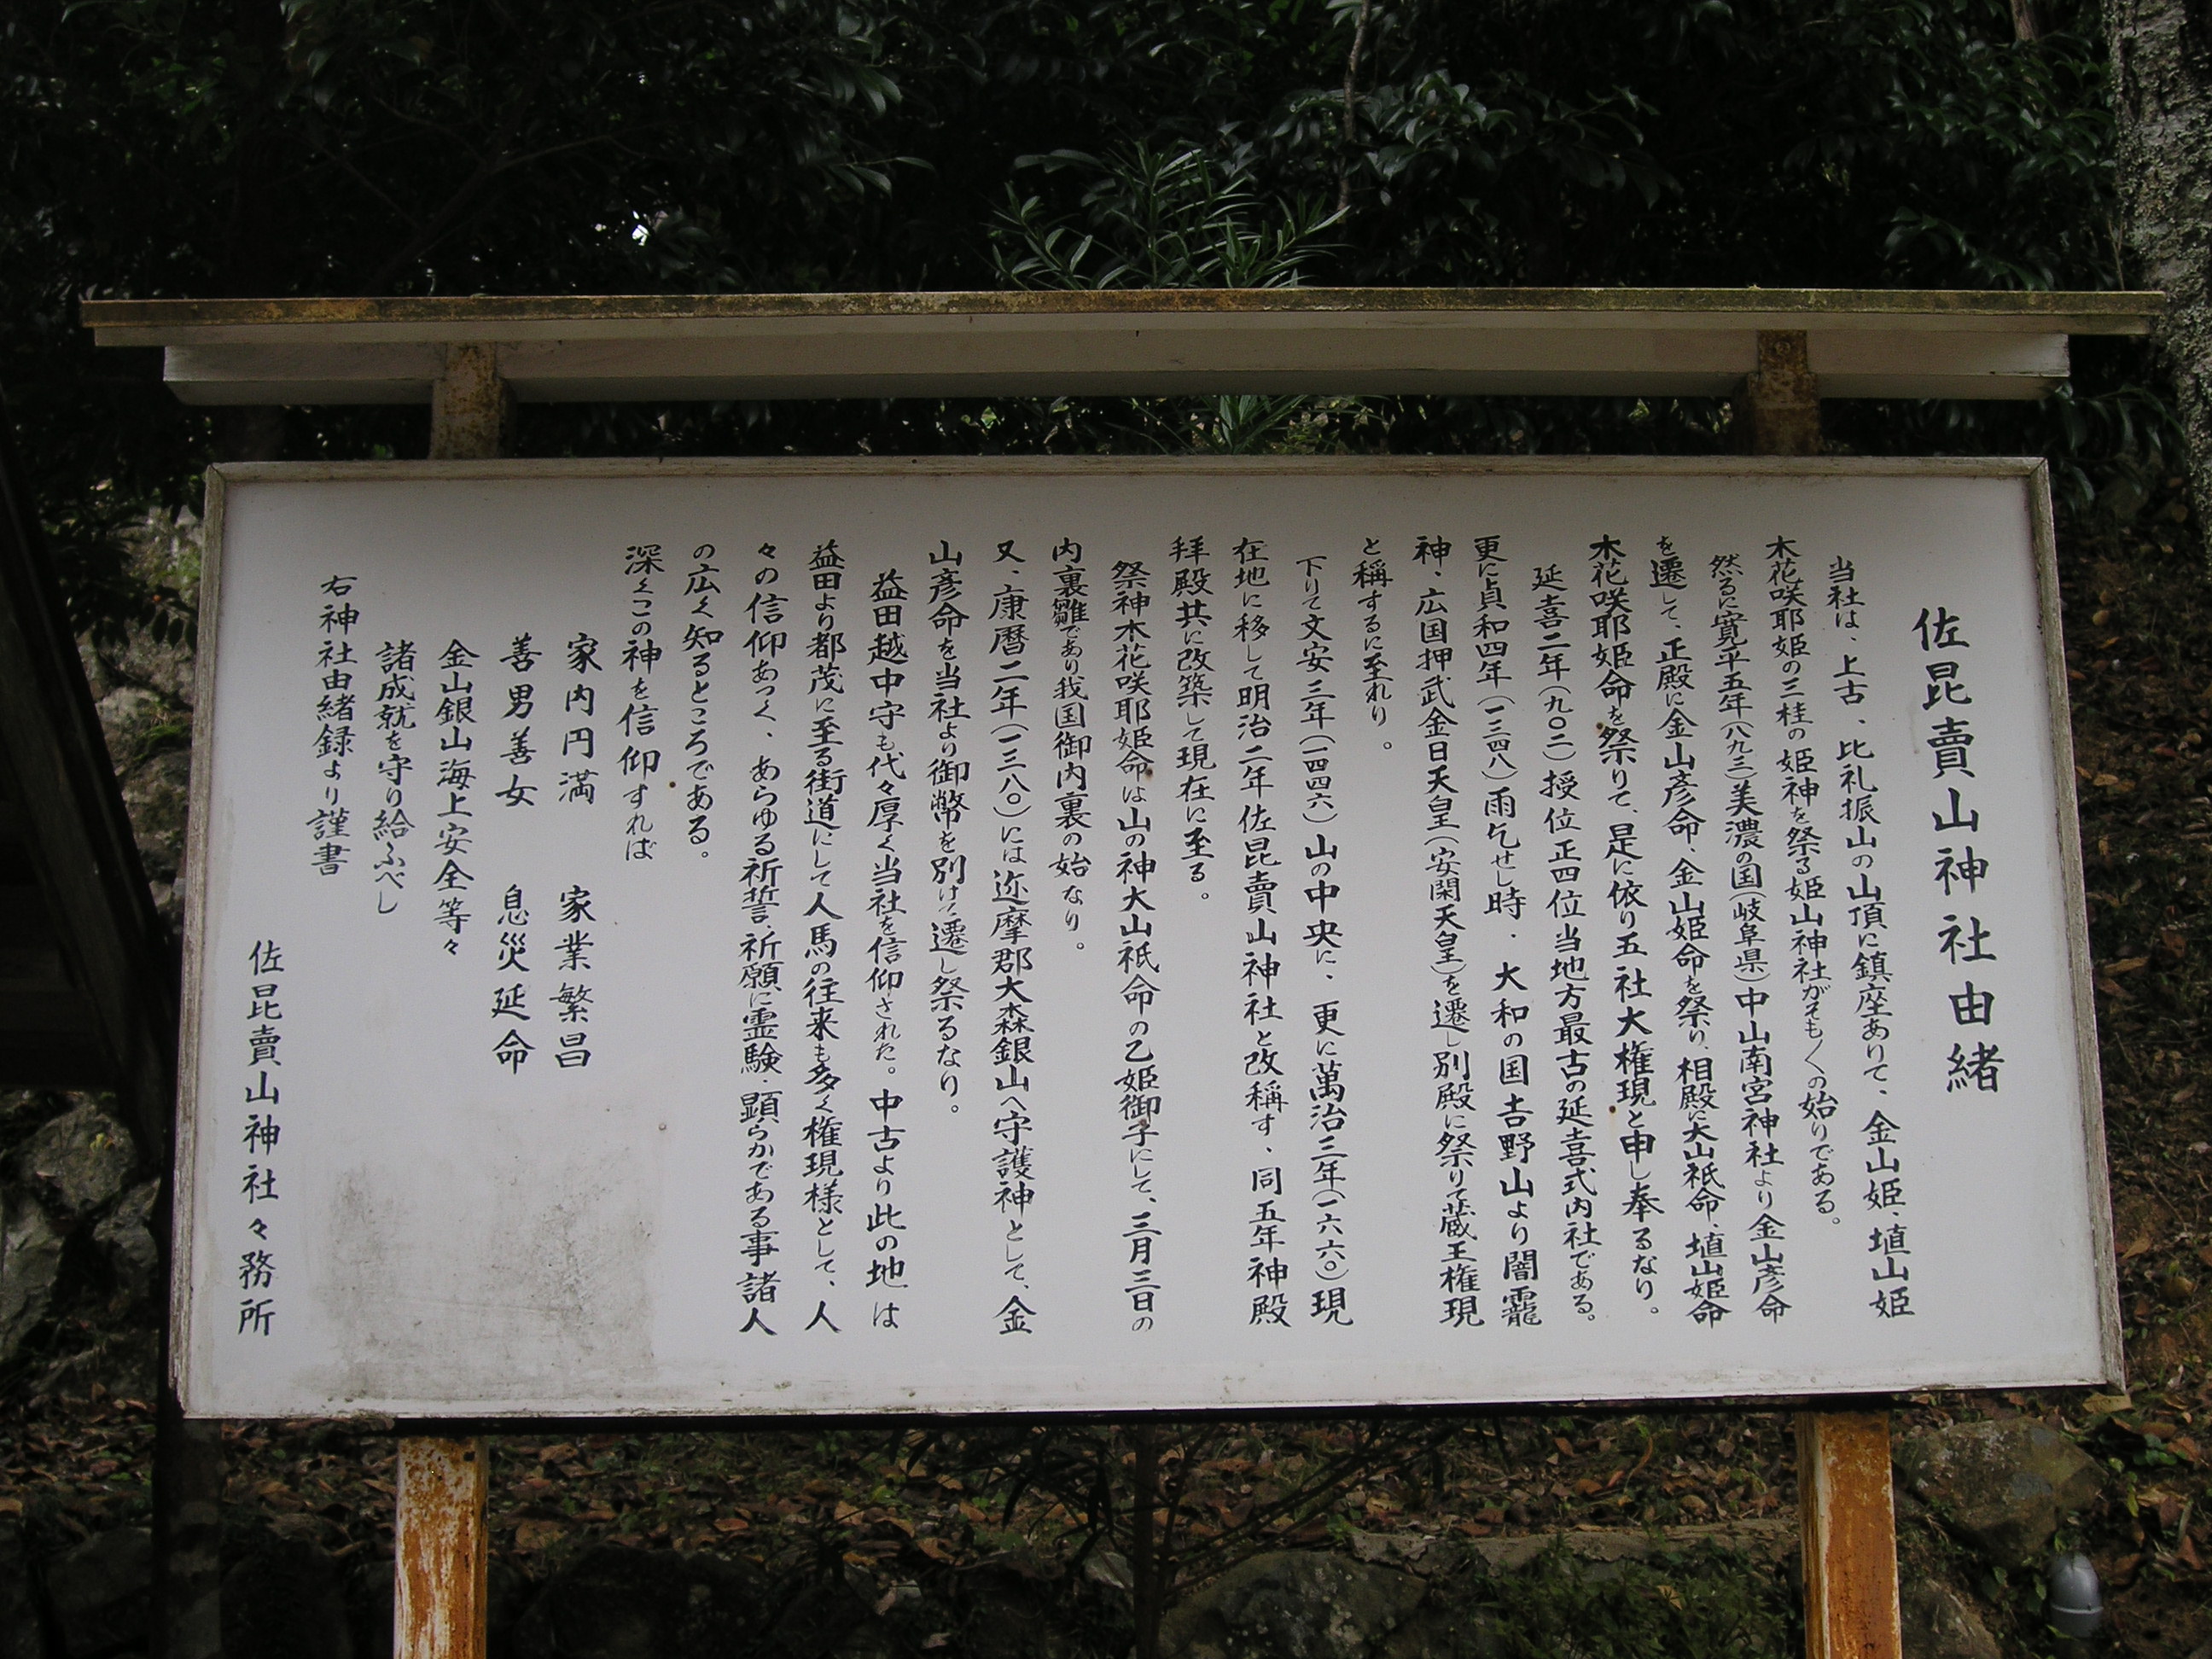 佐昆賣山神社由緒
当社は、上古、比礼振山の山頂に鎮座ありて、金山姫、埴山姫
木花咲耶姫の三桂の姫神を祭る姫山神社がそも〱の始りである。
然るに寛平五年(八九三)美濃の国(岐阜県)中山南宮神社より金山彦命
を遷して、正殿に金山彦命、金山姫命を祭り、相殿に大山祇命、埴山姫命
木花咲耶姫命を祭りて、是に依り五社大権現と申し奉るなり。
延喜二年(九〇二)授位正四位当地方最古の延喜式内社である。
更に貞和四年(一三四八)雨乞せし時、大和の国吉野山より闇龗
神、広国押武金日天皇(安閑天皇)を遷し別殿に祭りて蔵王権現
と稱するに至れり。
下りて文安三年(一四四六)山の中央に、更に萬治三年(一六六〇)現
在地に移して明治二年佐昆賣山神社と改稱す、同五年神殿
拝殿共に改築して現在に至る。
祭神木花咲耶姫命は山の神大山祇命の乙姫御子にして、三月三日の
内裏雛であり我国御内裏の始なり。
又、康暦二年(一三八〇)には迩摩郡大森銀山へ守護神として、金
山彦命を当社より御幣を別けて遷し祭るなり。
益田越中守も代々厚く当社を信仰された。中古より此の地は
益田より都茂に至る街道にして人馬の往来も多く権現様として、人
々の信仰あつく、あらゆる祈誓、祈願に霊験、顕らかである事諸人
の広く知るところである。
深くこの神を信仰すれば
家内円満 家業繁昌
善男善女 息災延命
金山銀山海上安全等々
諸成就を守り給ふべし
右神社由緒録より謹書
佐昆賣山神社々務所